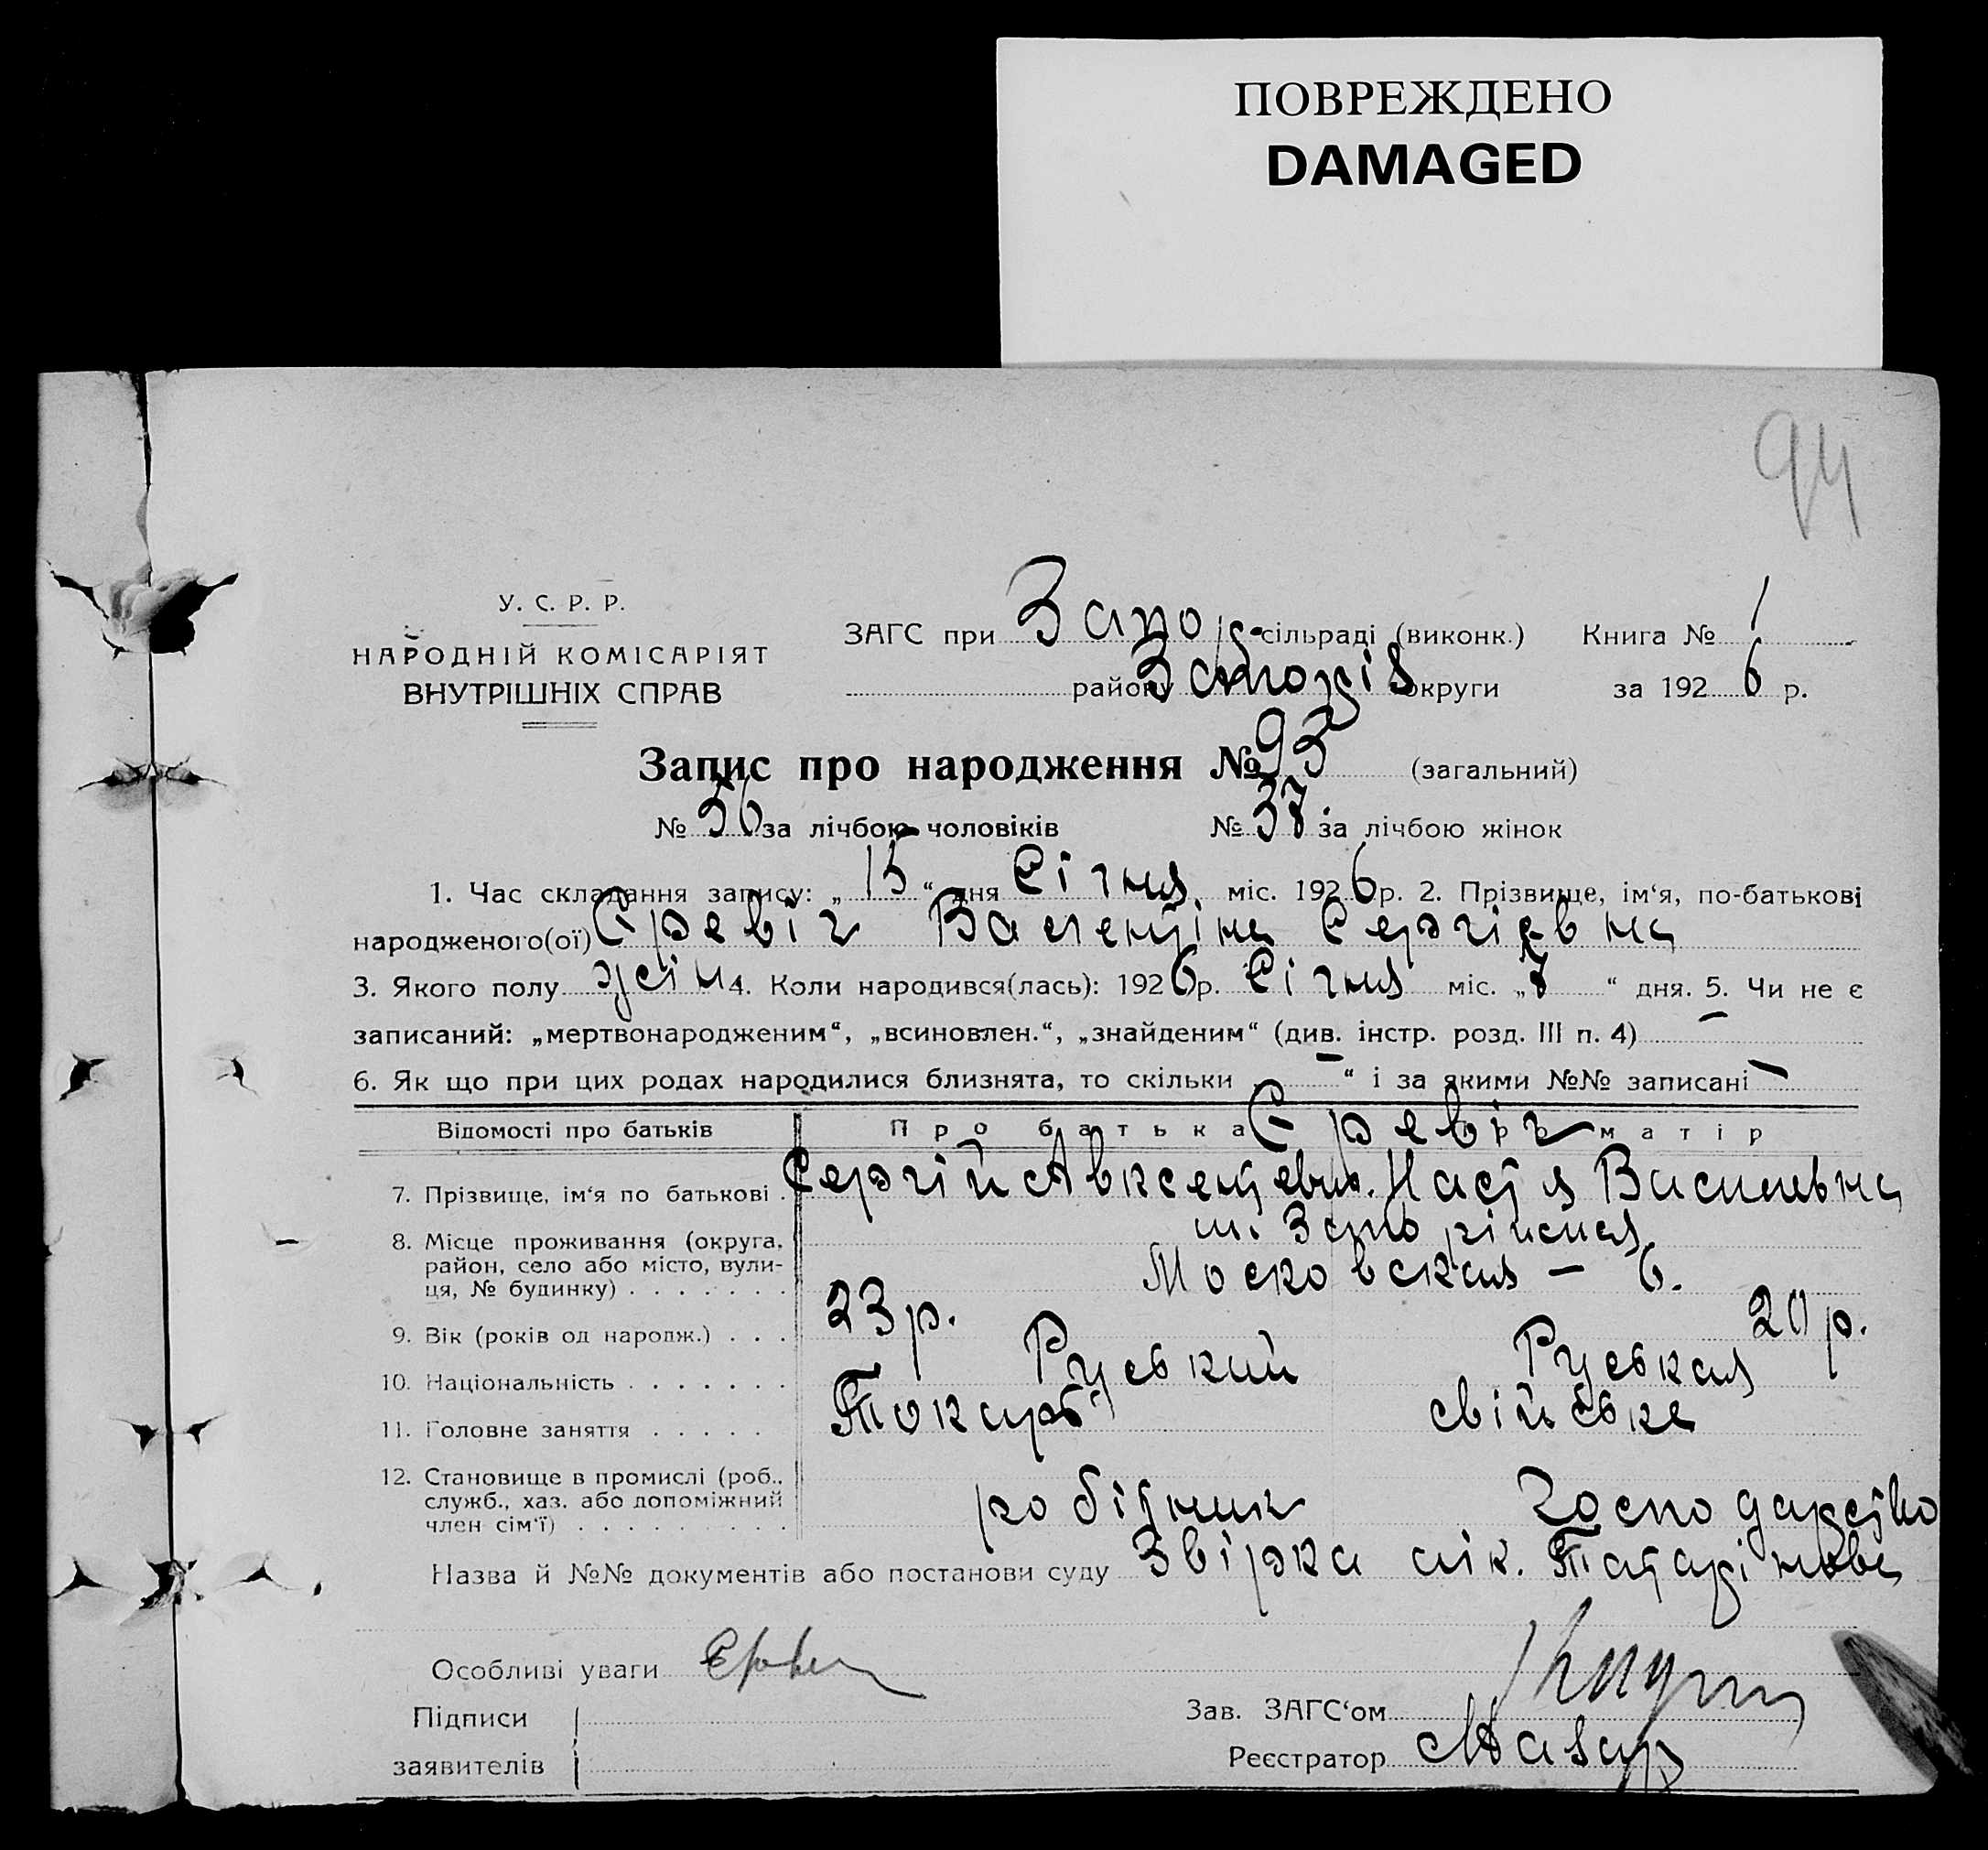 ПОВРЕЖДЕНО
DAMAGED
94
У. С. Р. Р.
НАРОДНІЙ КОМІСАРІЯТ
ВНУТРІШНІХ СПРАВ
ЗАГС при Запор. сільраді (виконк.) Книга № 1
району Запоріз округи за 1926 р.
Запис про народження № 93 (загальний)
№ 56 за лічбою чоловіків № 37 за лічбою жінок
1. Час складання запису: „15“ дня Січня міс. 1926 р. 2. Прізвище, ім‘я, по-батькові
народженого(ої) Єревіч Валентіна Сергієвна
3. Якого полу жін 4. Коли народився(лась): 1926 р. Січня міс. „7“ дня. 5. Чи не є
записаний: „мертвонародженим“, „всиновлен.“, „знайденим“ (див. інстр. розд. III п. 4) –
6. Як що при цих родах народилися близнята, то скільки „–“ і за якими №№ записані –
Відомості про батьків Про батька Єревіч Про матір
7. Прізвище, ім‘я по батькові . Сергій Авксентьевич. Настя Васильевна
8. Місце проживання (округа, район, село або місто, вулиця, № будинку) . . . . . . . м. Запоріжжя
Московская – 6.
9. Вік (років од народж.) . . . 23 р. 20 р.
10. Національність . . . . . . . Руський Руськая
11. Головне заняття . . . . . Токарь свійське
12. Становище в промислі (роб., служб., хаз. або допоміжний член сім‘ї) . . . . . . . . . робітник господарство
Назва й №№ документів або постанови суду Звірка лік. Татарінова
Особливі уваги
Підписи
заявителів
Зав. ЗАГС‘ом
Реєстратор Мазур